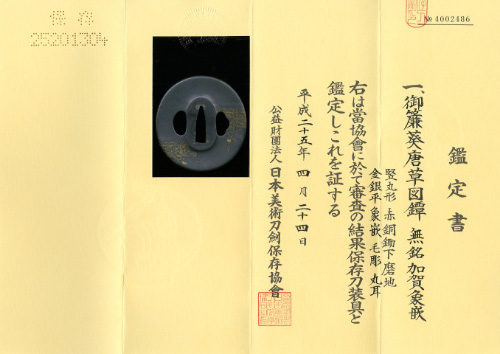 保存
25201304
№ 4002486
鑑定書
一、御簾葵唐草図鐔 無銘 加賀象嵌
竪丸形 赤銅鋤下磨地
金銀平象嵌 毛彫 丸耳
右は當協會に於て審査の結果保存刀装具と
鑑定しこれを証する
平成二十五年 四月二十四日
公益財團法人 日本美術刀劍保存協會